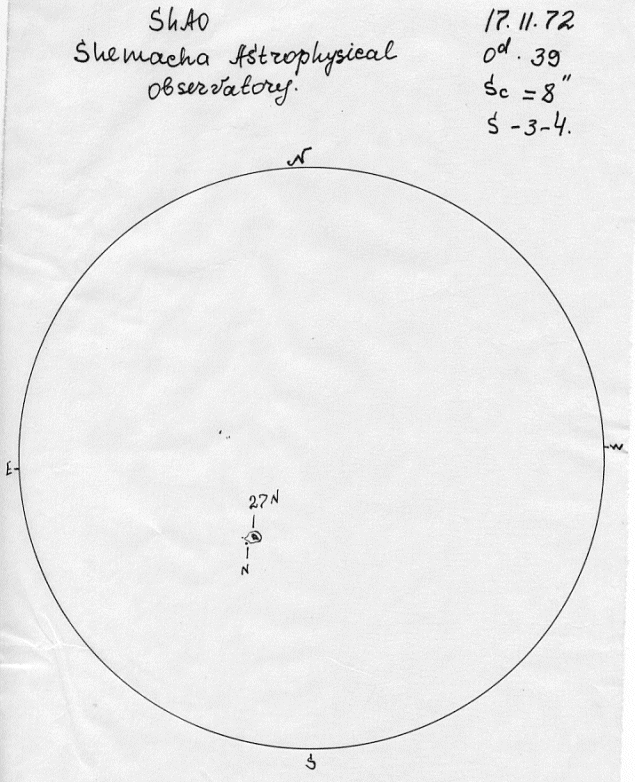 ShAO
Shemacha Astrophysical
observatory.
17.11.72
0ᵈ.39
Sc = 8"
S -3-4.
N
E
W
27N
N
S